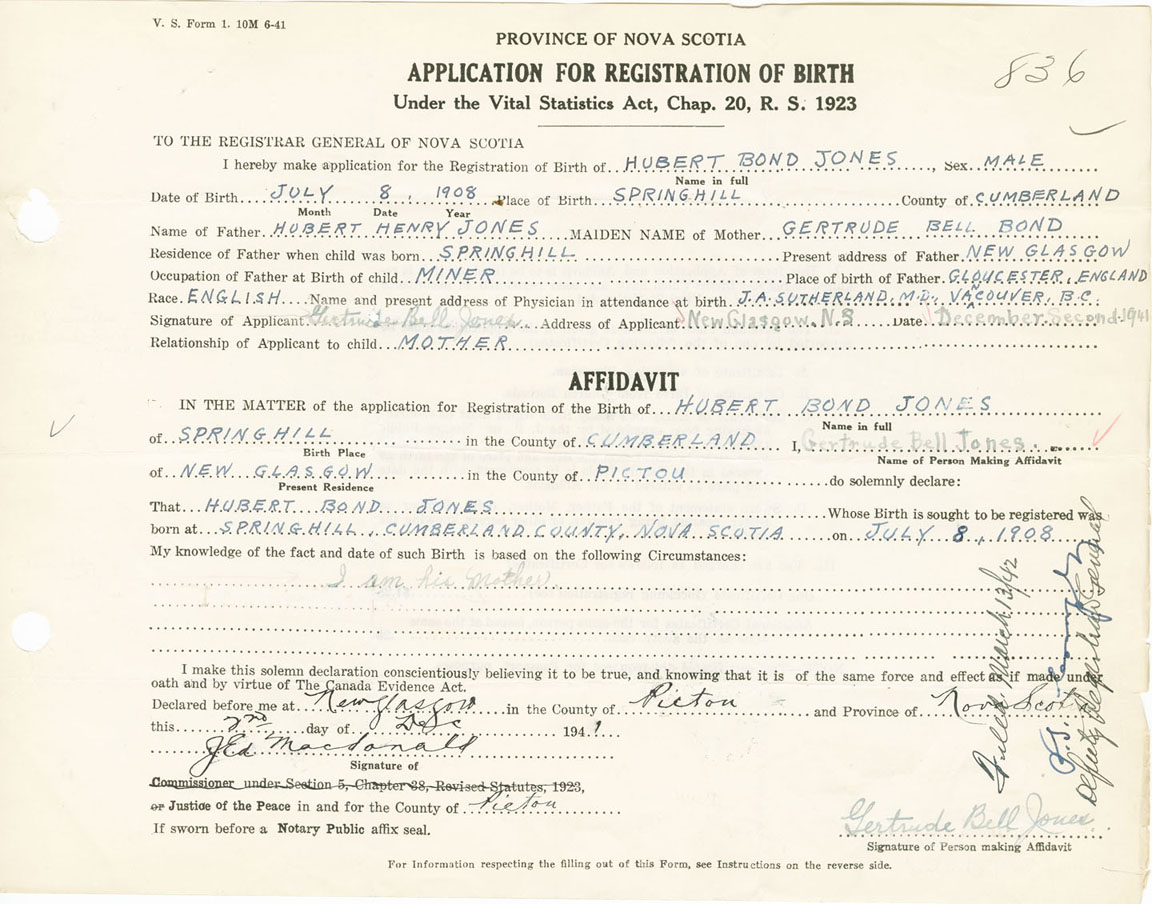 V. S. Form 1. 10M 6-41
PROVINCE OF NOVA SCOTIA
836
APPLICATION FOR REGISTRATION OF BIRTH
Under the Vital Statistics Act, Chap. 20, R. S. 1923
TO THE REGISTRAR GENERAL OF NOVA SCOTIA
I hereby make application for the Registration of Birth of HUBERT BOND JONES, Sex MALE
Name in full
Date of Birth JULY 8, 1908 Place of Birth SPRINGHILL County of CUMBERLAND
Month Date Year
Name of Father HUBERT HENRY JONES MAIDEN NAME of Mother GERTRUDE BELL BOND
Residence of Father when child was born SPRINGHILL Present address of Father NEW GLASGOW
Occupation of Father at Birth of child MINER Place of birth of Father GLOUCESTER, ENGLAND
Race ENGLISH Name and present address of Physician in attendance at birth J.A. SUTHERLAND, M.D., VANCOUVER, B.C.
Signature of Applicant Gertrude Bell Jones Address of Applicant New Glasgow, N.S Date December Second 1941
Relationship of Applicant to child MOTHER
AFFIDAVIT
IN THE MATTER of the application for Registration of the Birth of HUBERT BOND JONES
Name in full
of SPRINGHILL in the County of CUMBERLAND I, Gertrude Bell Jones
Birth Place Name of Person Making Affidavit
of NEW GLASGOW in the County of PICTOU do solemnly declare:
Present Residence
That HUBERT BOND JONES Whose Birth is sought to be registered was
born at SPRINGHILL, CUMBERLAND COUNTY, NOVA SCOTIA on JULY 8, 1908
My knowledge of the fact and date of such Birth is based on the following Circumstances:
I am his mother
I make this solemn declaration conscientiously believing it to be true, and knowing that it is of the same force and effect as if made under
oath and by virtue of The Canada Evidence Act.
Declared before me at New Glasgow in the County of Pictou and Province of Nova Scot
this 2nd day of Dec 1941
J Ed Macdonald
Signature of
Commissioner under Section 5, Chapter 38, Revised Statutes, 1923,
or Justice of the Peace in and for the County of Pictou
If sworn before a Notary Public affix seal.
Gertrude Bell Jones
Signature of Person making Affidavit
For Information respecting the filling out of this Form, see Instructions on the reverse side.
Filed March 13/42
Deputy Registrar General